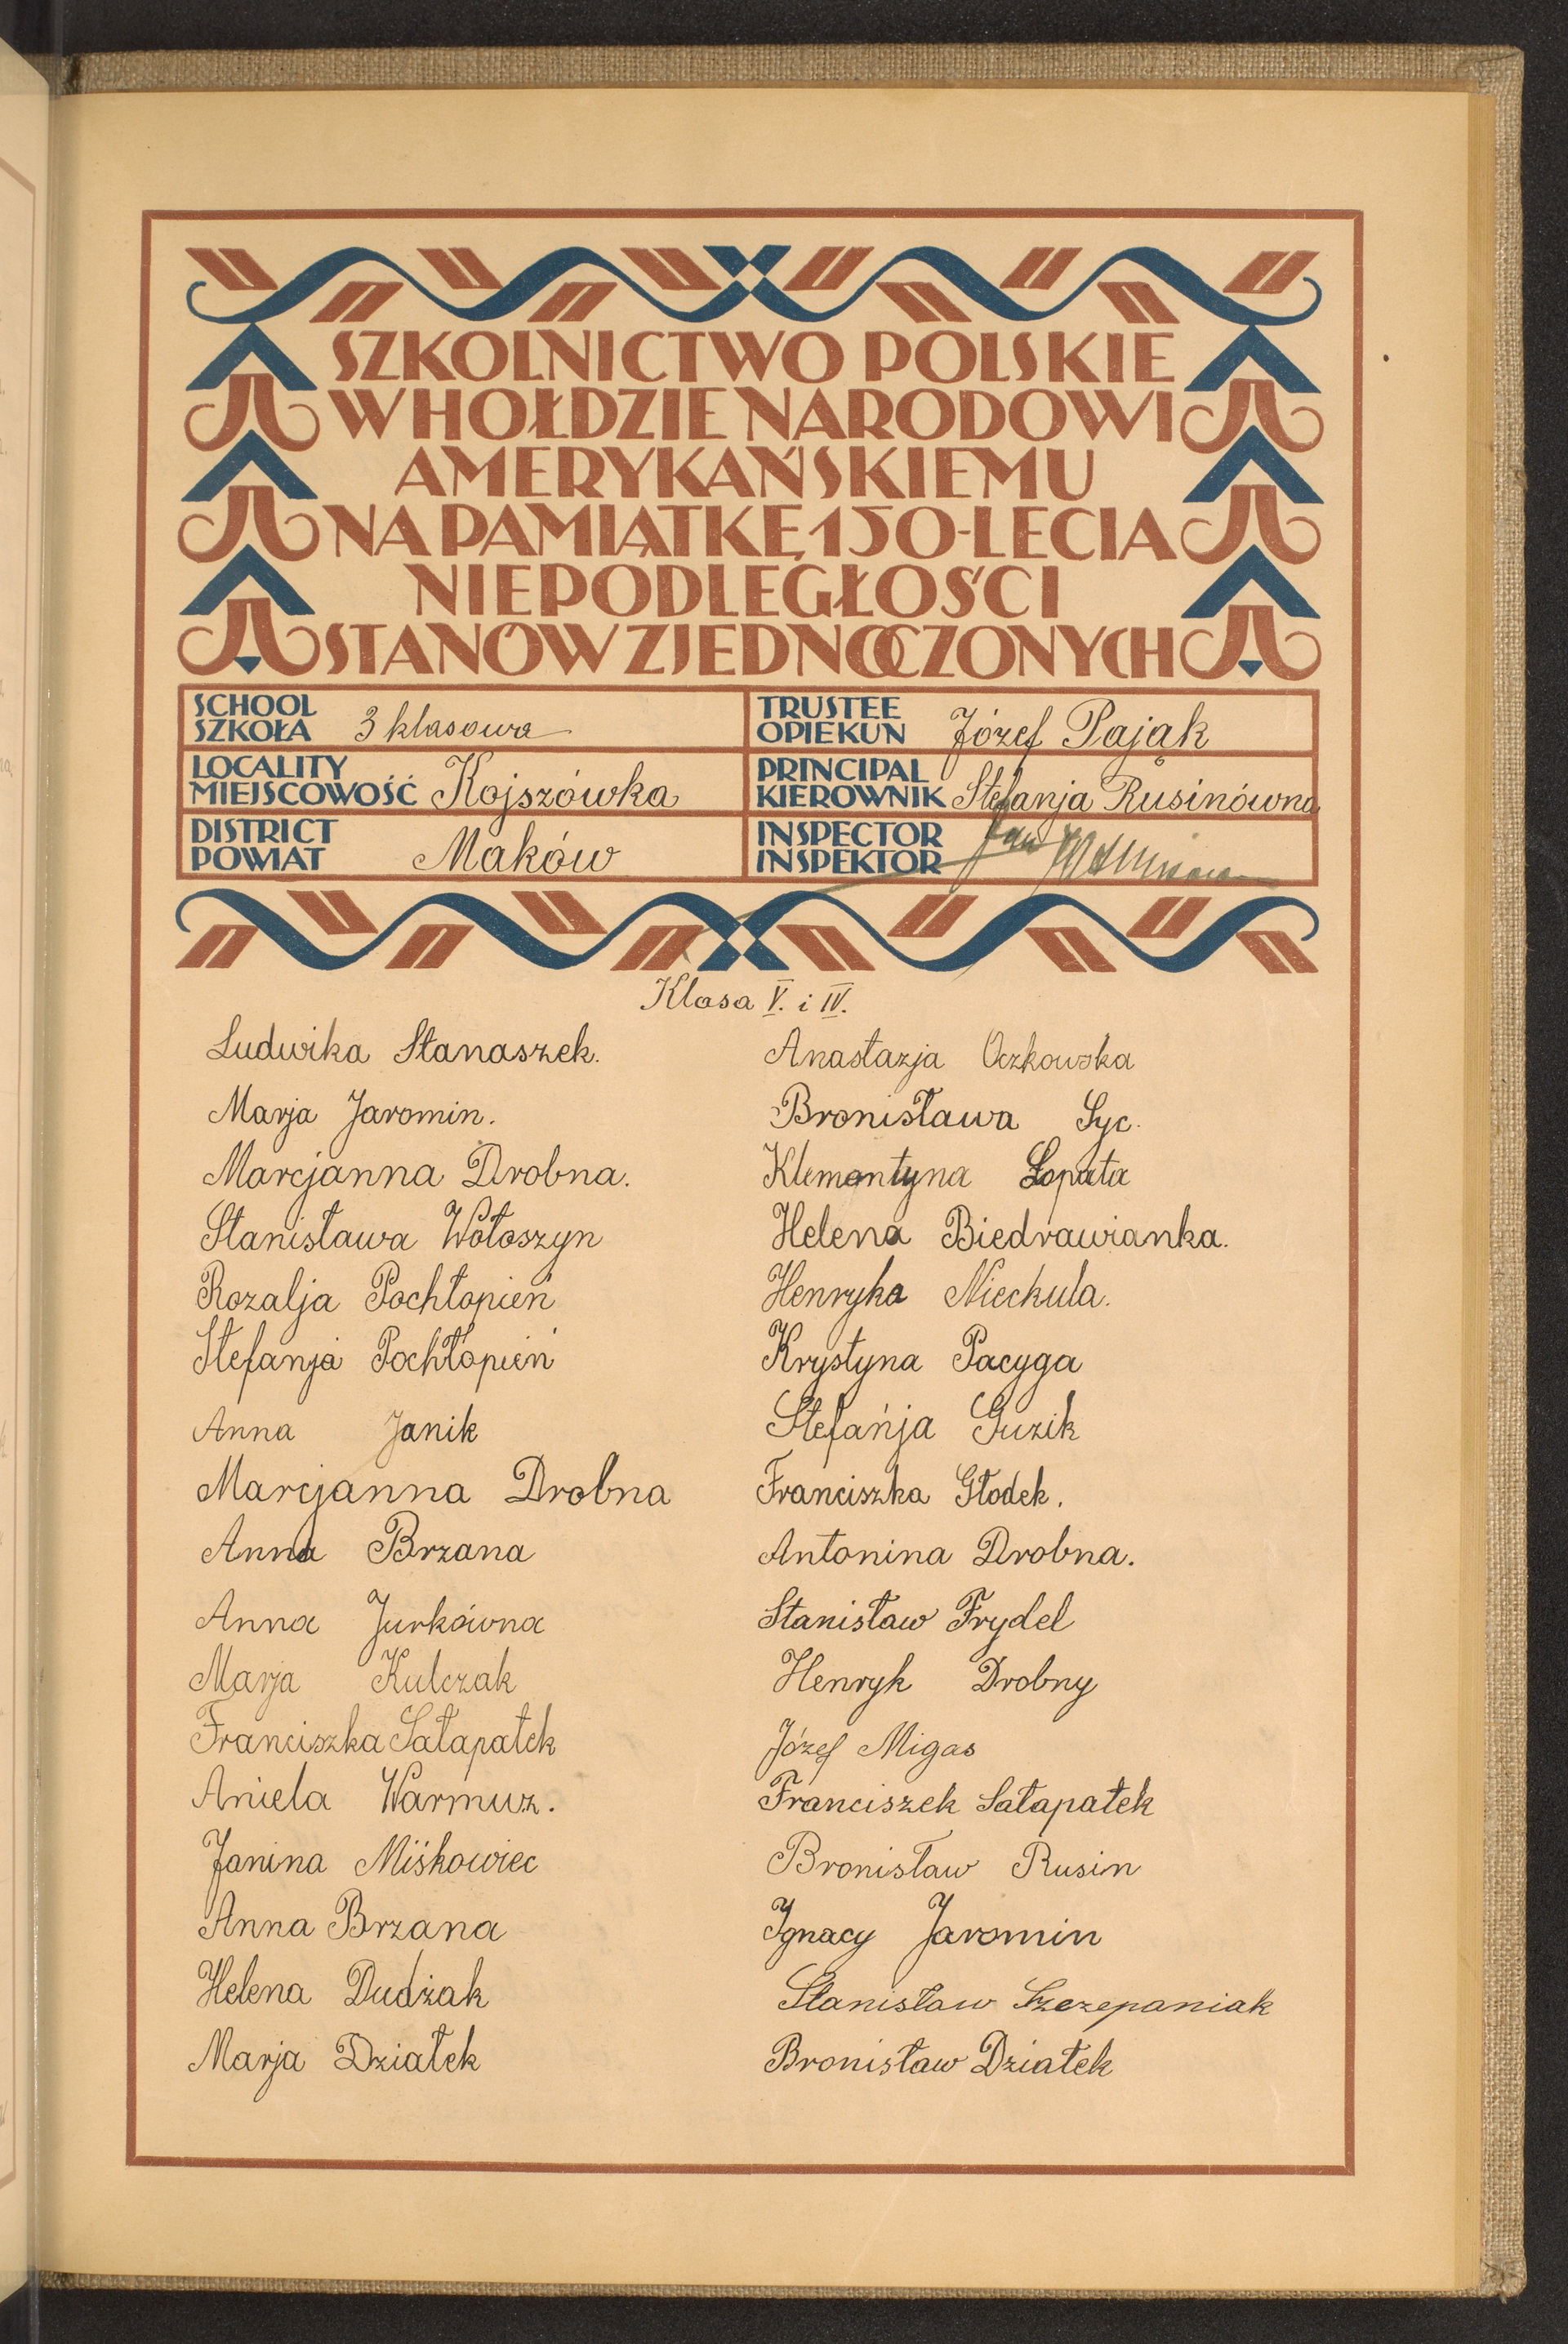 SZKOLNICTWO POLSKIE
W HOŁDZIE NARODOWI
AMERYKAŃSKIEMU
NA PAMIĄTKĘ 150-LECIA
NIEPODLEGŁOŚCI
STANÓW ZJEDNOCZONYCH
SCHOOL
SZKOŁA 3 klasowa
LOCALITY
MIEJSCOWOŚĆ Kojszówka
DISTRICT
POWIAT Maków
TRUSTEE
OPIEKUN Józef Pająk
PRINCIPAL
KIEROWNIK Stefanja Rusinówna
INSPECTOR
INSPEKTOR Jan
Klasa V. i IV.
Ludwika Stanaszek.
Marja Jaromin.
Marcjanna Drobna.
Stanisława Wołoszyn
Rozalja Pochłopień
Stefanja Pochłopień
Anna Janik
Marcjanna Drobna
Anna Brzana
Anna Jurkówna
Marja Kulczak
Franciszka Sałapatek
Aniela Warmuz.
Janina Miśkowiec
Anna Brzana
Helena Dudżak
Marja Działek
Anastazja Oczkowska
Bronisława Syc.
Klementyna Łopata
Helena Biedrawianka.
Henryka Niechula.
Krystyna Pacyga
Stefańja Guzik
Franciszka Głodek.
Antonina Drobna.
Stanisław Frydel
Henryk Drobny
Józef Migas
Franciszek Sałapatek
Bronisław Rusin
Ignacy Jaromin
Stanisław Szczepaniak
Bronisław Działek